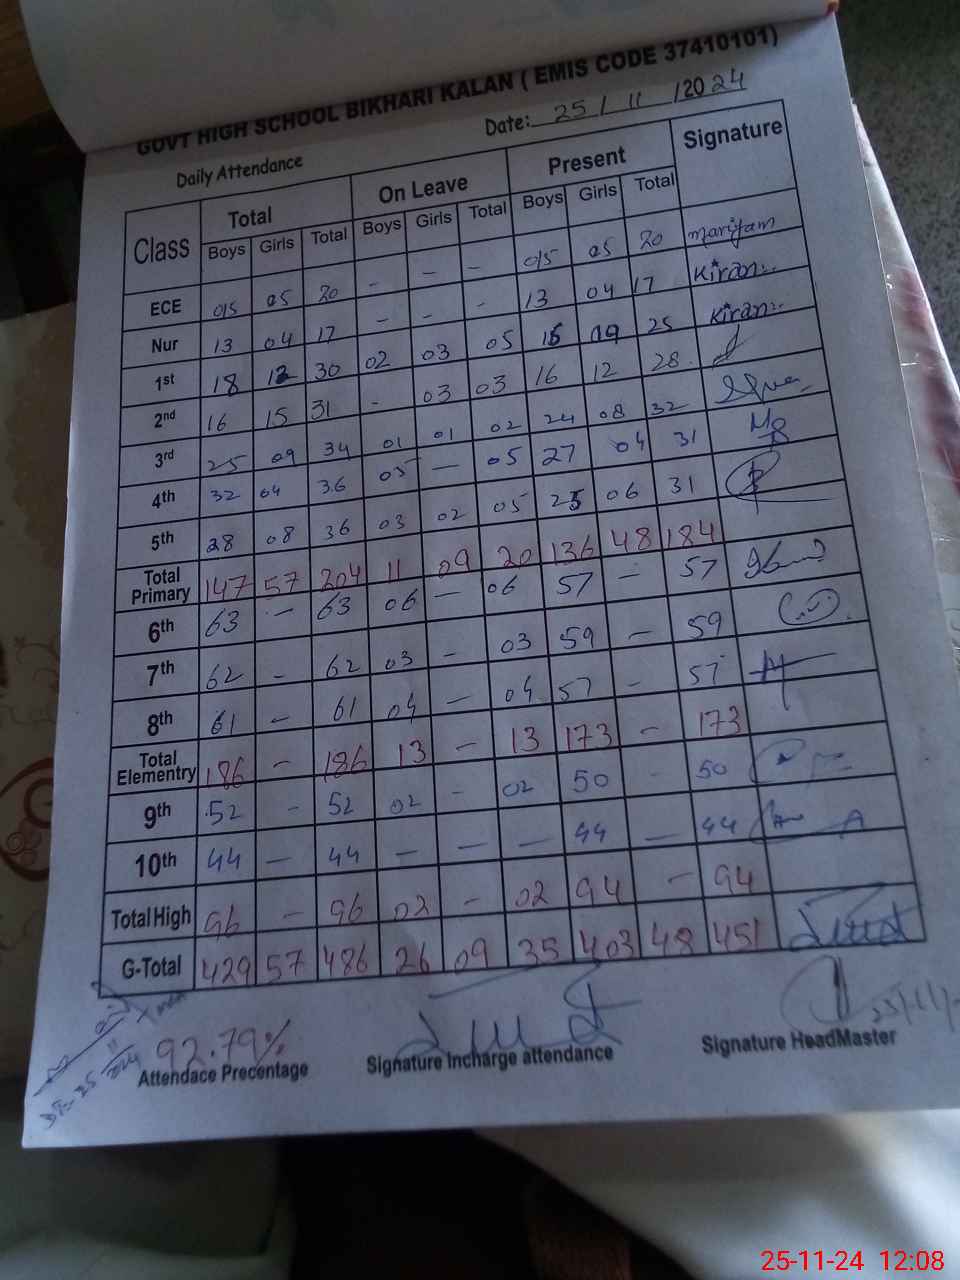 GOVT HIGH SCHOOL BIKHARI KALAN ( EMIS CODE 37410101)
Daily Attendance Date: 25 / 11 /2024
Class Total On Leave Present Signature
Boys Girls Total Boys Girls Total Boys Girls Total
ECE 015 05 20 - - - 015 05 20 mariyam
Nur 13 04 17 - - - 13 04 17 Kiran
1st 18 12 30 02 03 05 25 Kiran
2nd 16 15 31 - 03 03 16 12 28
3rd 25 09 34 01 01 02 24 08 32
4th 32 04 36 05 - 05 27 04 31
5th 28 08 36 03 02 05 25 06 31
Total Primary 147 57 204 11 09 20 136 48 184
6th 63 - 63 06 - 06 57 - 57
7th 62 - 62 03 - 03 59 - 59
8th 61 - 61 04 - 04 57 - 57
Total Elementry 186 - 186 13 - 13 173 - 173
9th 52 - 52 02 - 02 50 - 50
10th 44 - 44 - - - 44 - 44
Total High 96 - 96 02 - 02 94 - 94
G-Total 429 57 486 26 09 35 403 48 451
92.79%
Attendace Precentage Signature Incharge attendance Signature HeadMaster
25-11-24 12:08